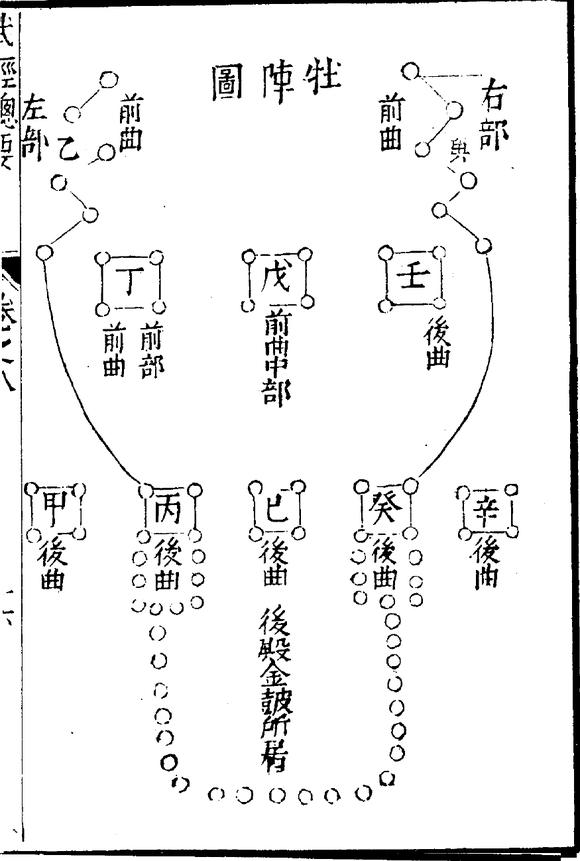 牡陣圖
右部
前曲
前曲
左部
乙
壬
後曲
戊
前曲中部
丁
前部
前曲
辛
後曲
癸
後曲
己
後曲
丙
後曲
甲
後曲
後殿金鼓所居
武經總要
卷之八